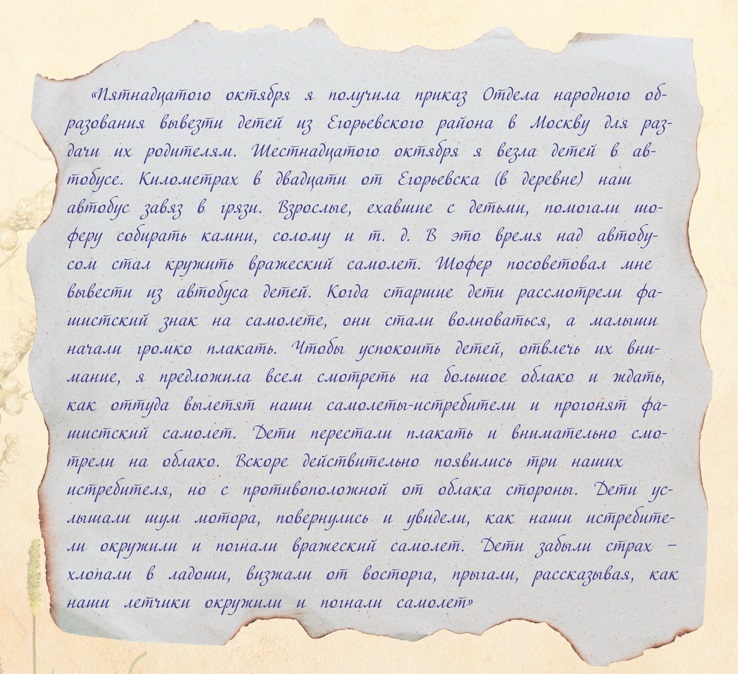 «Пятнадцатого октября я получила приказ Отдела народного об-
разования вывезти детей из Егорьевского района в Москву для раз-
дачи их родителям. Шестнадцатого октября я везла детей в ав-
тобусе. Километрах в двадцати от Егорьевска (в деревне) наш
автобус завяз в грязи. Взрослые, ехавшие с детьми, помогали шо-
феру собирать камни, солому и т. д. В это время над автобу-
сом стал кружить вражеский самолет. Шофер посоветовал мне
вывести из автобуса детей. Когда старшие дети рассмотрели фа-
шистский знак на самолете, они стали волноваться, а малыши
начали громко плакать. Чтобы успокоить детей, отвлечь их вни-
мание, я предложила всем смотреть на большое облако и ждать,
как оттуда вылетят наши самолеты-истребители и прогонят фа-
шистский самолет. Дети перестали плакать и внимательно смо-
трели на облако. Вскоре действительно появились три наших
истребителя, но с противоположной от облака стороны. Дети ус-
лышали шум мотора, повернулись и увидели, как наши истребите-
ли окружили и погнали вражеский самолет. Дети забыли страх –
хлопали в ладоши, визжали от восторга, прыгали, рассказывая, как
наши летчики окружили и погнали самолет»